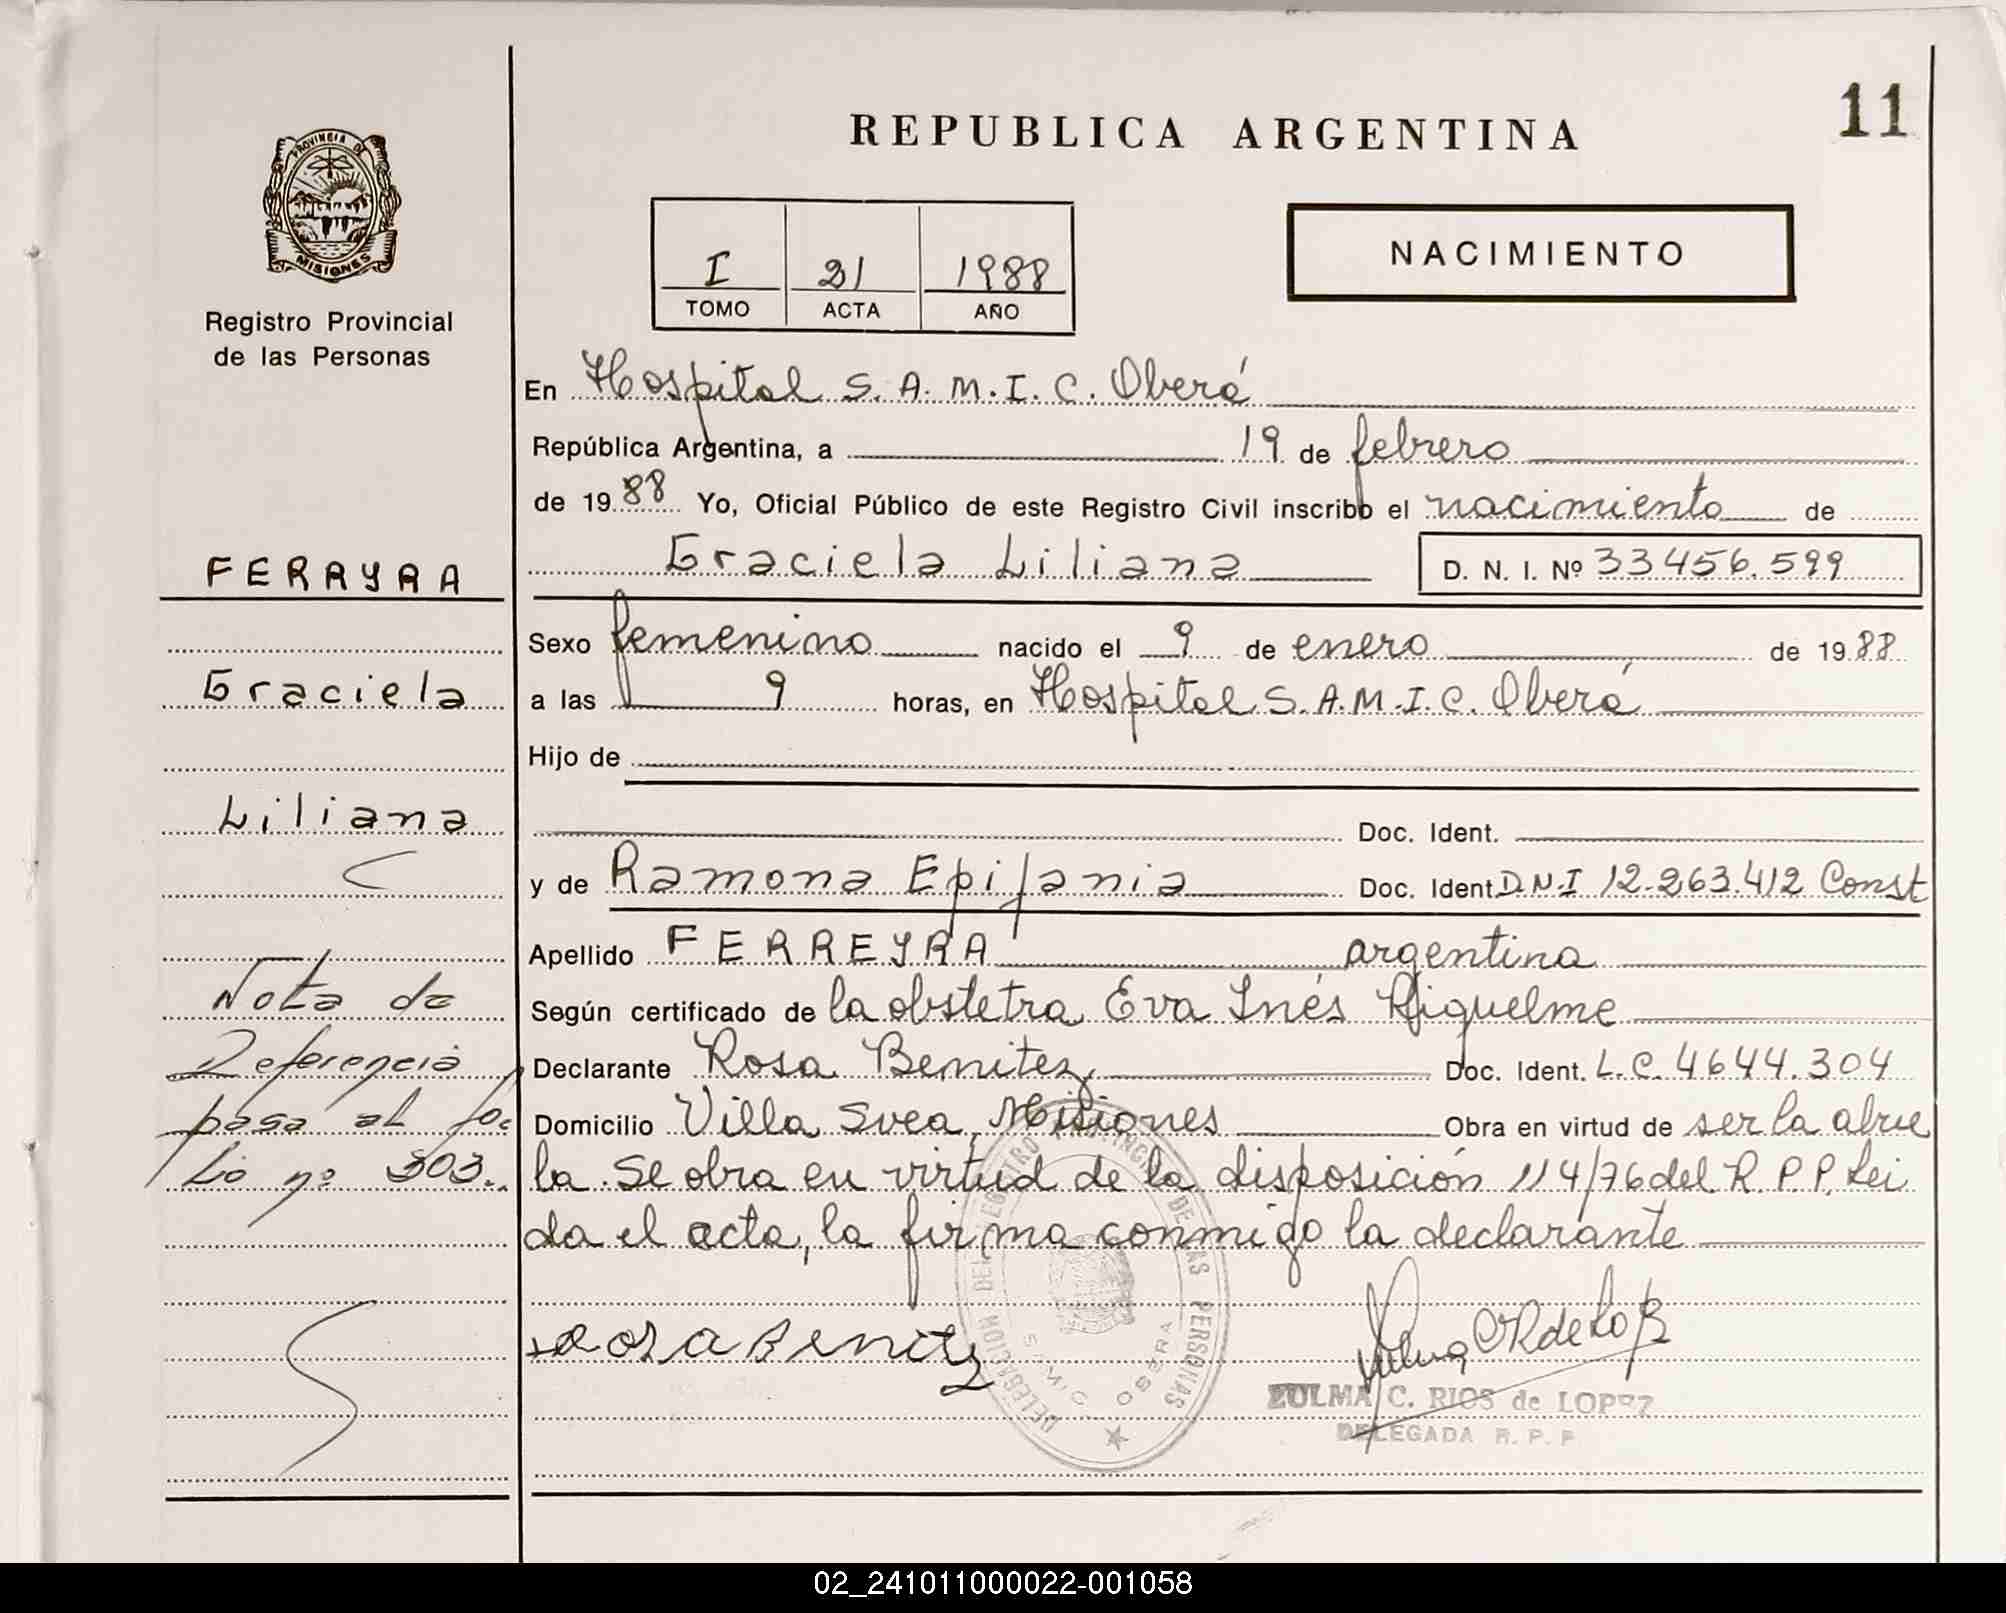 11
REPUBLICA ARGENTINA
PROVINCIA DE
MISIONES
Registro Provincial
de las Personas
NACIMIENTO
I 21 1988
TOMO ACTA AÑO
En Hospital S.A.M.I.C. Oberá
República Argentina, a 19 de febrero
de 1988 Yo, Oficial Público de este Registro Civil inscribo el nacimiento de
Graciela Liliana D. N. I. Nº 33456.599
Sexo femenino nacido el 9 de enero de 1988
a las 9 horas, en Hospital S.A.M.I.C. Oberá
Hijo de
Doc. Ident.
y de Ramona Epifania Doc. Ident. D.N.I 12.263.412 Const
Apellido FERREYRA argentina
Según certificado de la obstetra Eva Inés Riquelme
Declarante Rosa Benitez Doc. Ident. L.C. 4644.304
Domicilio Villa Svea, Misiones Obra en virtud de ser la abue
la. Se obra en virtud de la disposición 114/76 del R.P.P. Lei
da el acta, la firma conmigo la declarante
FERAYRA
Graciela
Liliana
Nota de
Referencia
pasa al fo-
lio nº 303.
Rosa Benitez
DELEGACION DEL REGISTRO PROVINCIAL DE LAS PERSONAS
SAMIC OBERA
ZULMA C. RIOS de LOPEZ
DELEGADA R. P. P
02_241011000022-001058